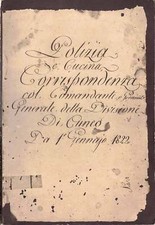 Polizia
e Cucina
Corrispondenza
col Comandante
Generale della Divisione
Di Cuneo
Da 1° Gennajo 1822